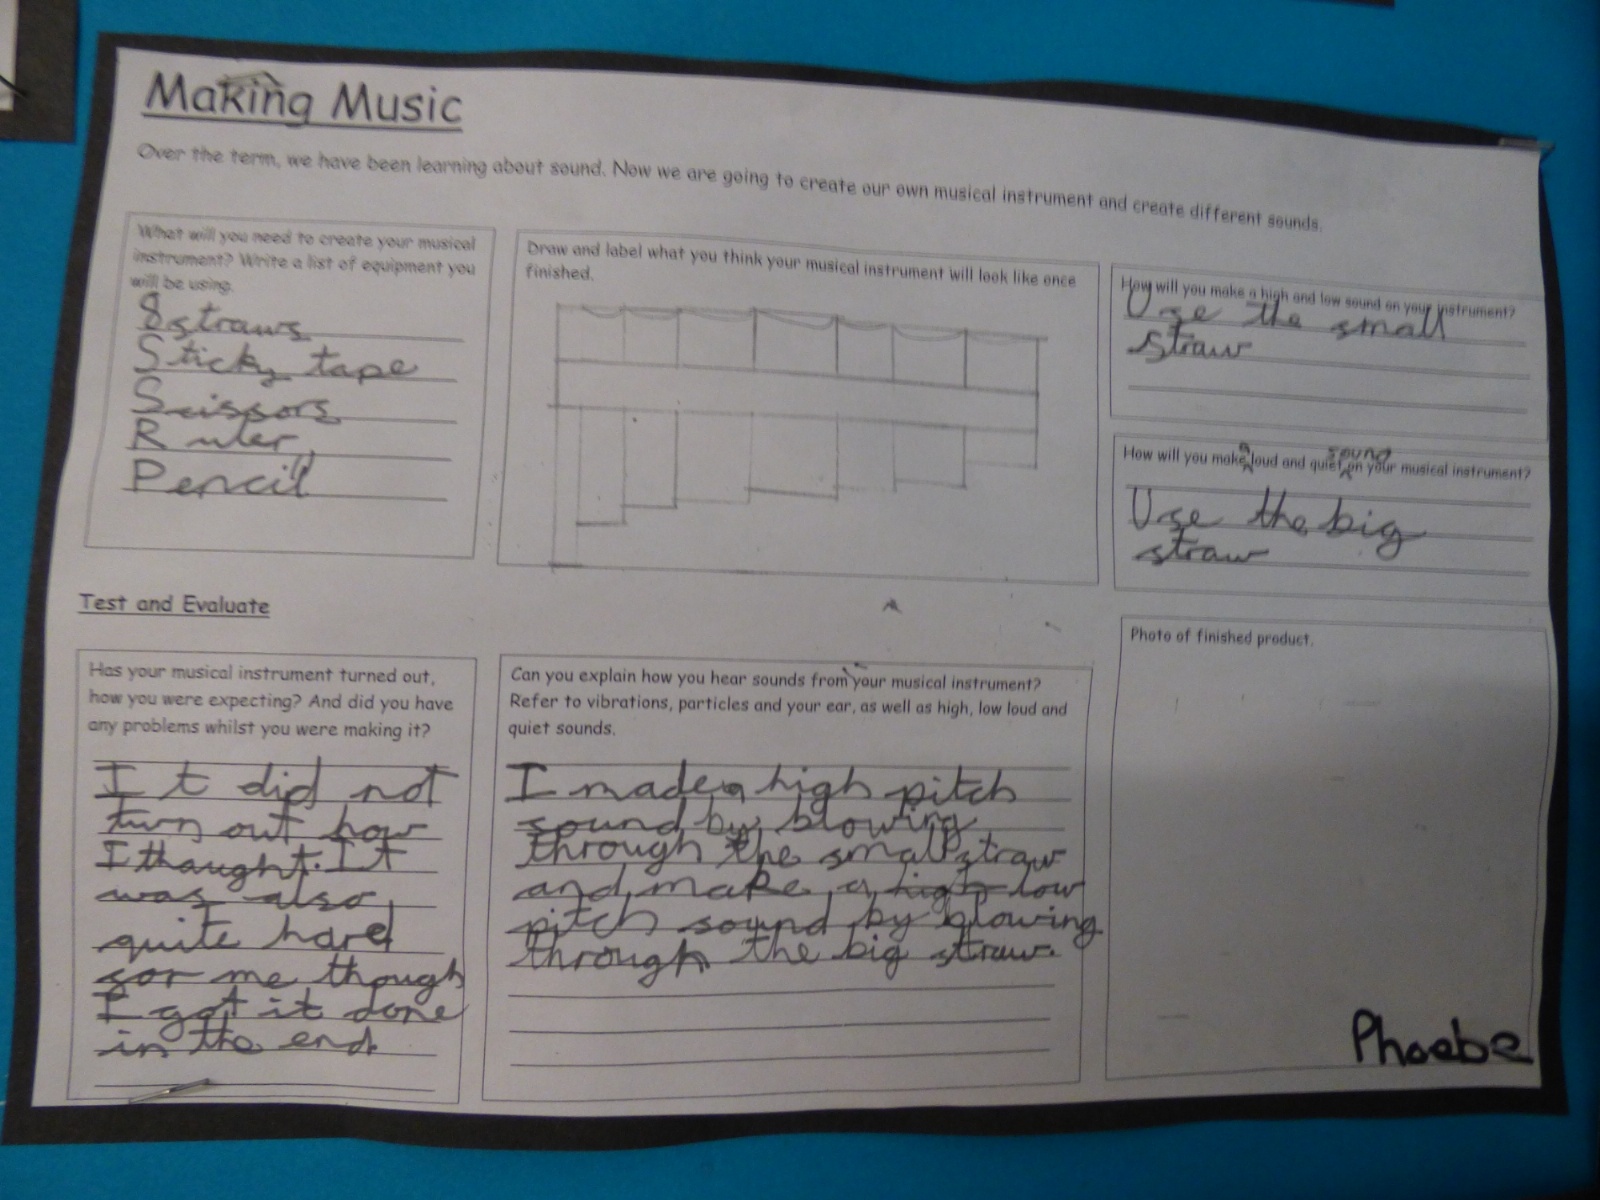 Making Music
Over the term, we have been learning about sound. Now we are going to create our own musical instrument and create different sounds.
What will you need to create your musical
instrument? Write a list of equipment you
will be using.
8 straws
Sticky tape
Scissors
Ruler
Pencil
Draw and label what you think your musical instrument will look like once
finished.
How will you make a high and low sound on your instrument?
Use the small
straw
How will you make a loud and quiet sound on your musical instrument?
Use the big
straw
Test and Evaluate
Has your musical instrument turned out,
how you were expecting? And did you have
any problems whilst you were making it?
It did not
turn out how
I thaught. It
was also
quite hard
for me though
I got it done
in the end
Can you explain how you hear sounds from your musical instrument?
Refer to vibrations, particles and your ear, as well as high, low loud and
quiet sounds.
I made a high pitch
sound by blowing
through the small straw
and make a high low
pitch sound by blowing
through the big straw.
Photo of finished product.
Phoebe